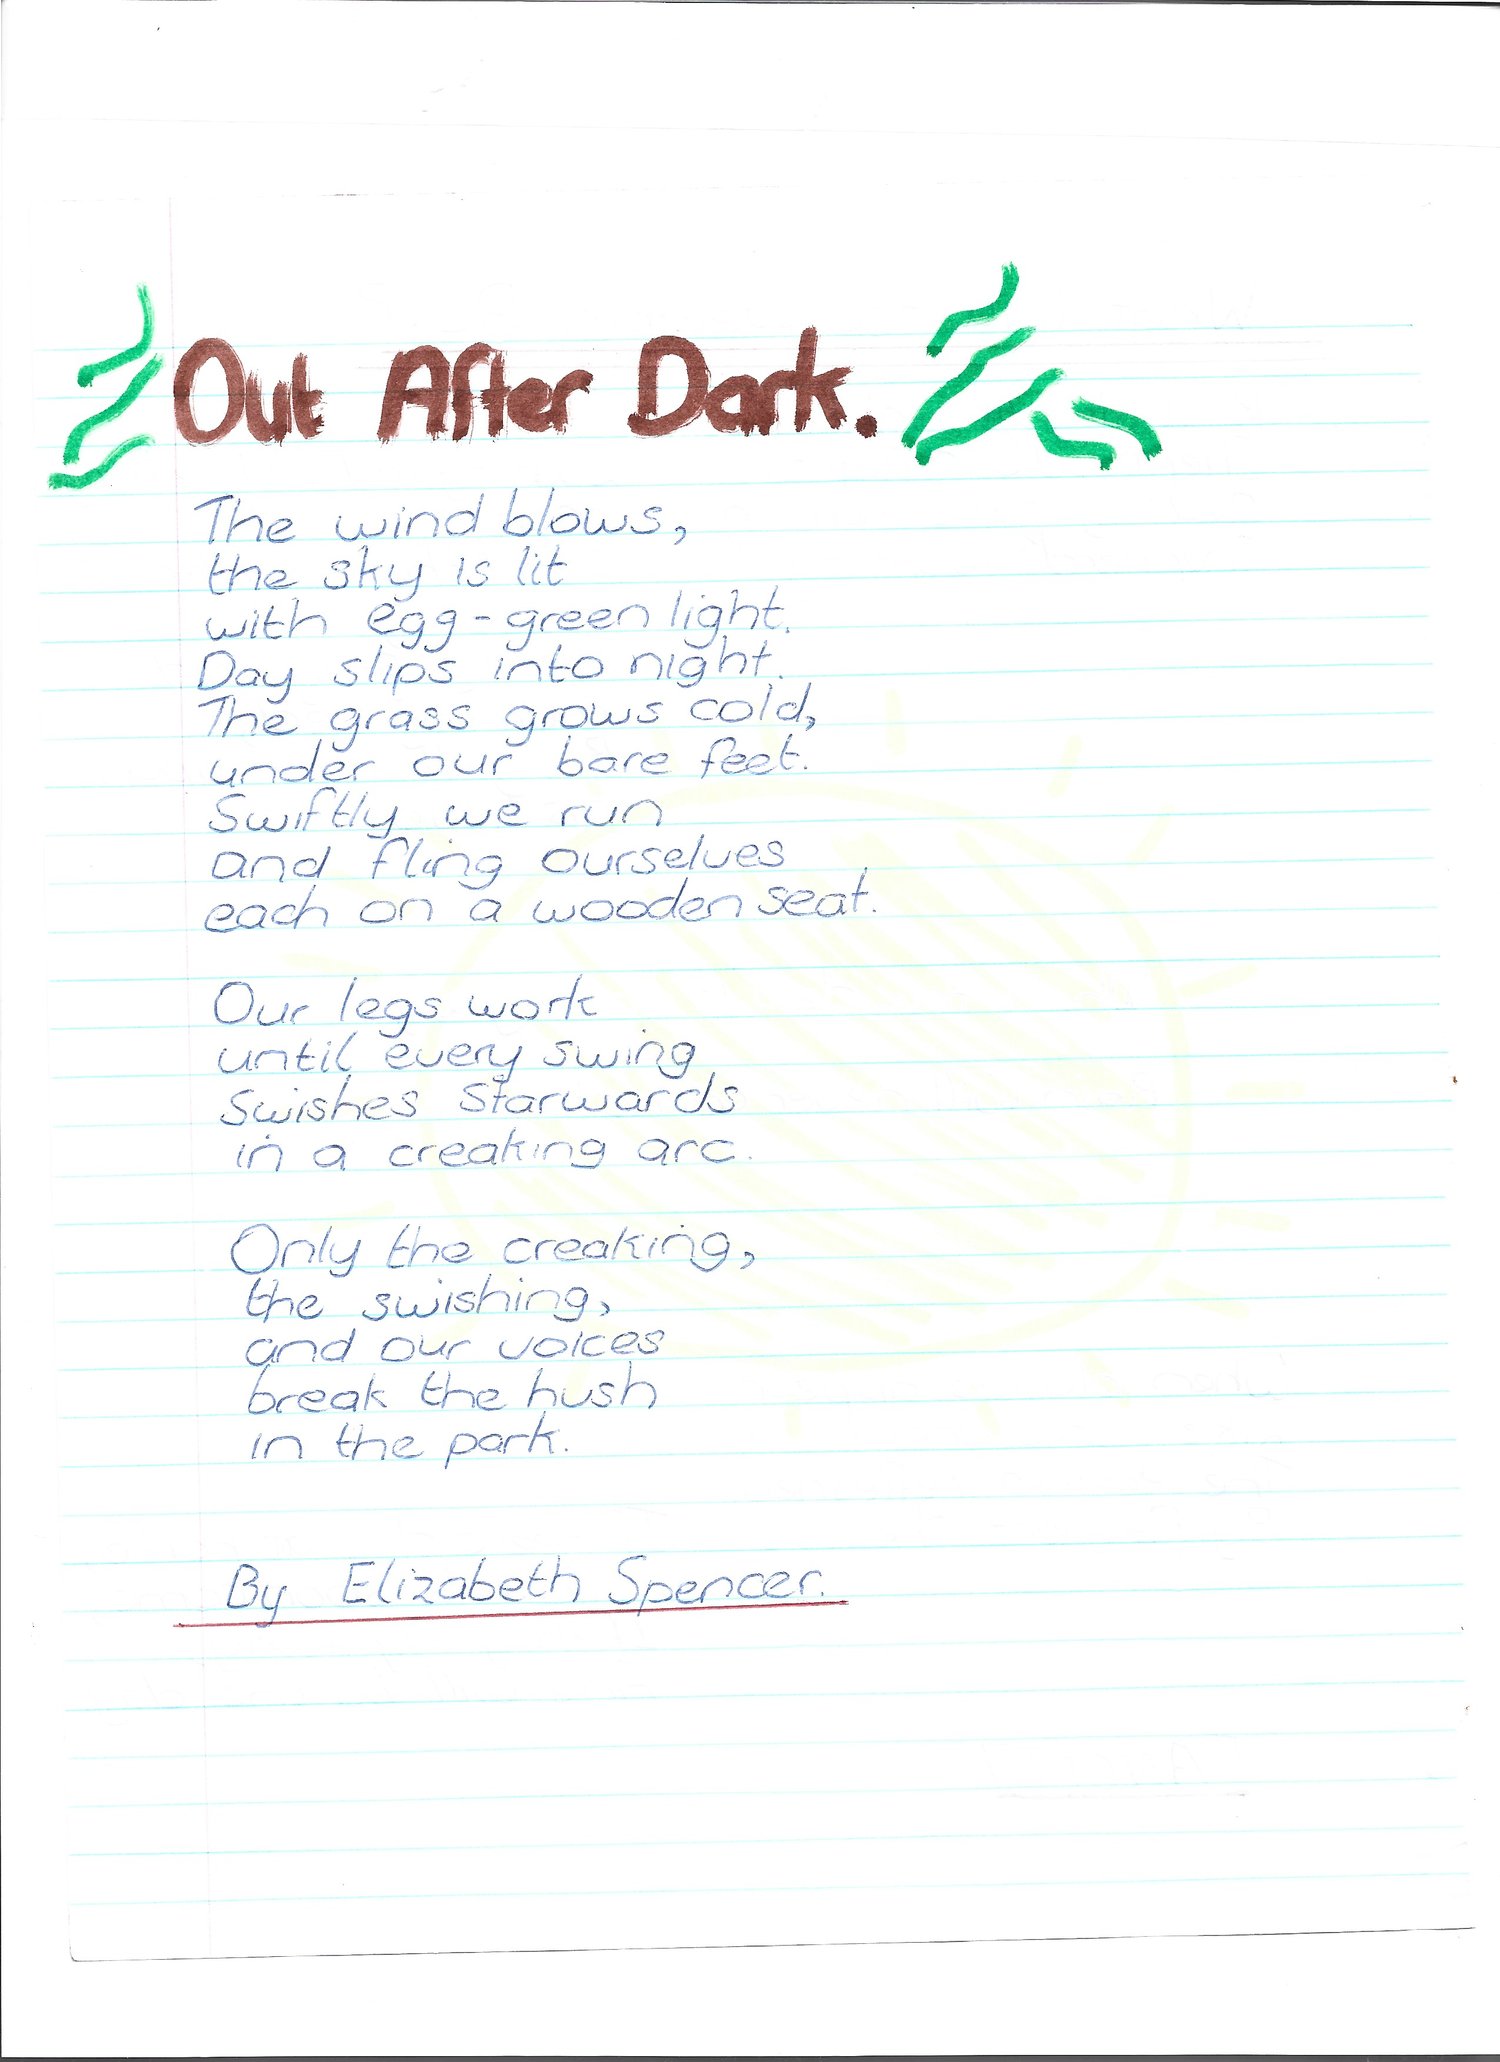 Out After Dark.
The wind blows,
the sky is lit
with egg-green light.
Day slips into night.
The grass grows cold,
under our bare feet.
Swiftly we run
and fling ourselves
each on a wooden seat.
Our legs work
until every swing
swishes starwards
in a creaking arc.
Only the creaking,
the swishing,
and our voices
break the hush
in the park.
By Elizabeth Spencer.